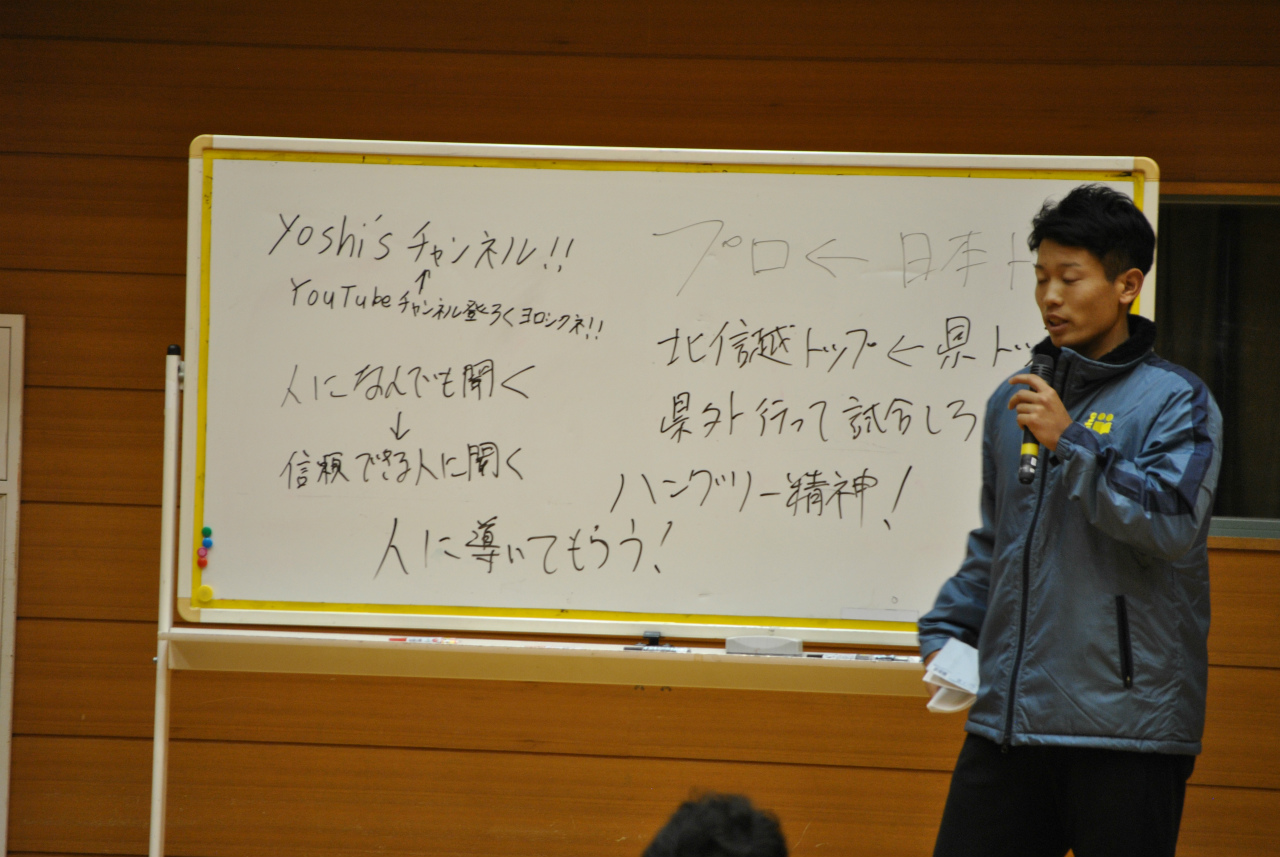 Yoshi's チャンネル!!
↑
YouTube チャンネル登ろくヨロシクネ!!
人になんでも聞く
↓
信頼できる人に聞く
人に導いてもらう!
プロ ← 日本ト
北信越トップ ← 県トッ
県外行って試合しろ
ハングリー精神!